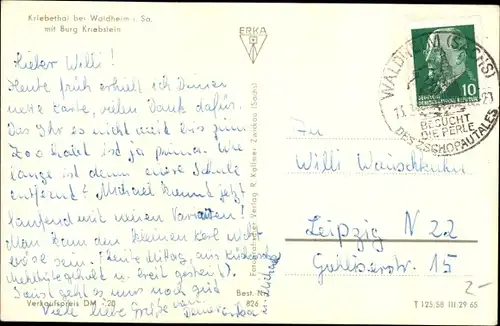 Kriebethal bei Waldheim i. Sa.
mit Burg Kriebstein
ERKA
Lieber Willi!
Heute früh erhielt ich Deine
nette Karte, vielen Dank dafür.
Das Ihr es nicht weit bis zum
Zoo habt ist ja prima. Wie
lange ist denn eure Schule
entfernt? Michael kommt jetzt
laufend mit neuen Varianten!
Man kann dem kleinen Kerl
böse sein. (Heute Mittag, aus
geholt u. breit gestreut).
Sonst geht es uns noch gut
Viele liebe Grüße von
Verkaufspreis DM -.20
Best. Nr.
826
u. Michael
Fotografischer Verlag R. Kallmer, Zwickau (Sachs)
WALDHEIM (SACHS)
BESUCHT
DIE PERLE
DES ZSCHOPAUTALES
10
DEUTSCHE DEMOKRATISCHE REPUBLIK
An
Willi Wunschkuhn
Leipzig N 22
Gohliserstr. 15
T 125/58 III/29/65